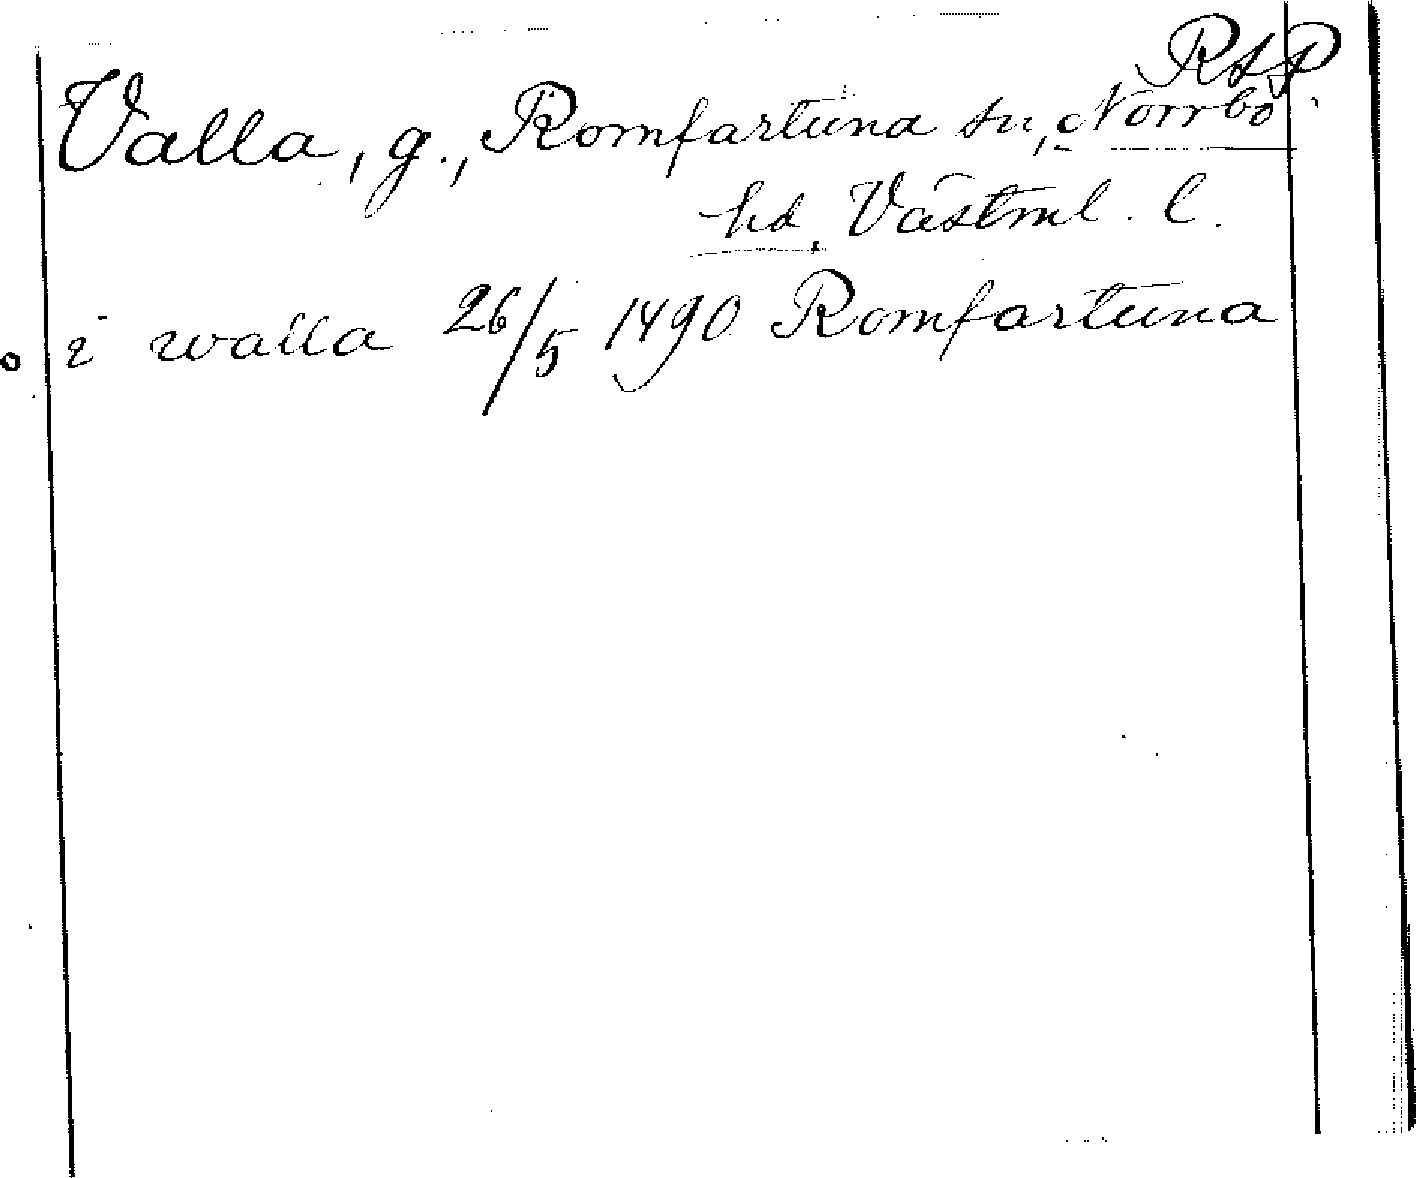 RAP
Valla, g., Romfartuna sn, Norrbo
hd, Västml. l.
i walla 26/5 1490 Romfartuna